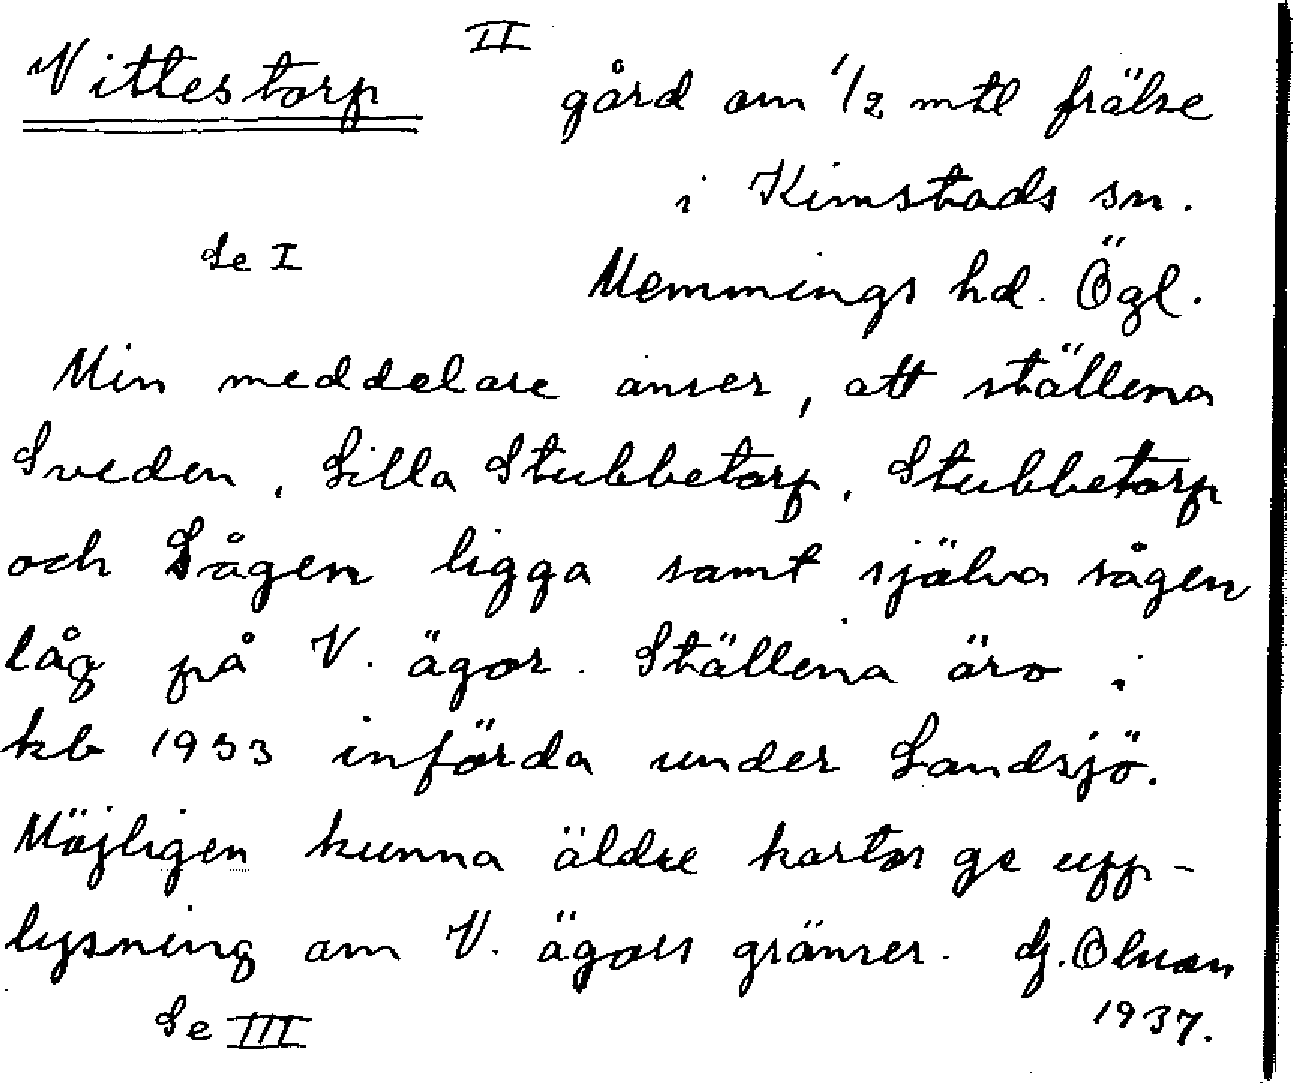 II
Vittestorp gård om 1/2 mtl frälse
i Kimstads sn.
Se I Memmings hd. Ögl.
Min meddelare anser, att ställena
Sveden, Lilla Stubbetorp, Stubbetorp
och Sågen ligga samt själva sågen
låg på V. ägor. Ställena äro i
kb 1933 införda under Landsjö.
Möjligen kunna äldre kartor ge upp-
lysning om V. ägors gränser. Hj. Olson
Se III 1937.